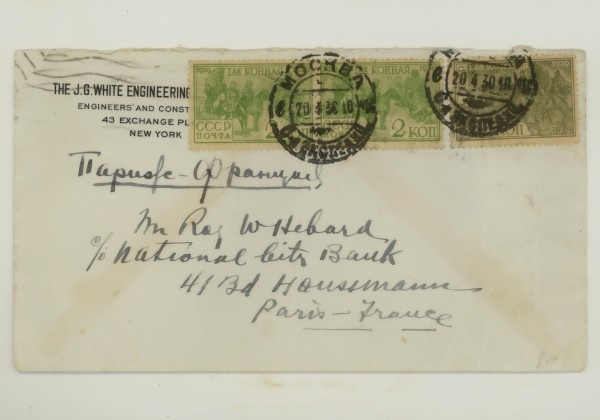 THE J.G. WHITE ENGINEERING
ENGINEERS AND CONST
43 EXCHANGE PL
NEW YORK
1АЯ КОННАЯ КОННАЯ
СССР
ПОЧТА
2 КОП
МОСКВА
6 20 4 30 10
20 4 30 10
КОП
Париж-Франция
Mr Ray W Hebard
c/o National City Bank
41 Bd Haussmann
Paris - France